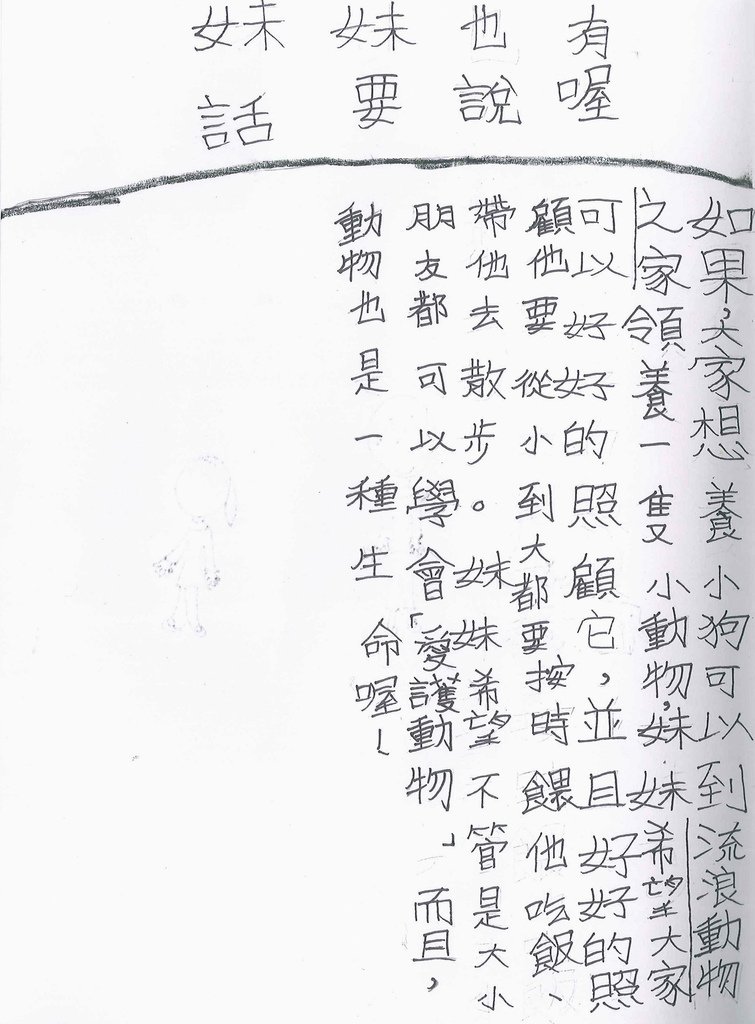 妹妹也有
話要說喔
如果，大家想養小狗可以到流浪動物
之家領養一隻小動物，妹妹希望大家
可以好好的照顧它，並且好好的照
顧他要從小到大都要按時餵他吃飯、
帶他去散步。妹妹希望不管是大小
朋友都可以學會「愛護動物」而且，
動物也是一種生命喔！